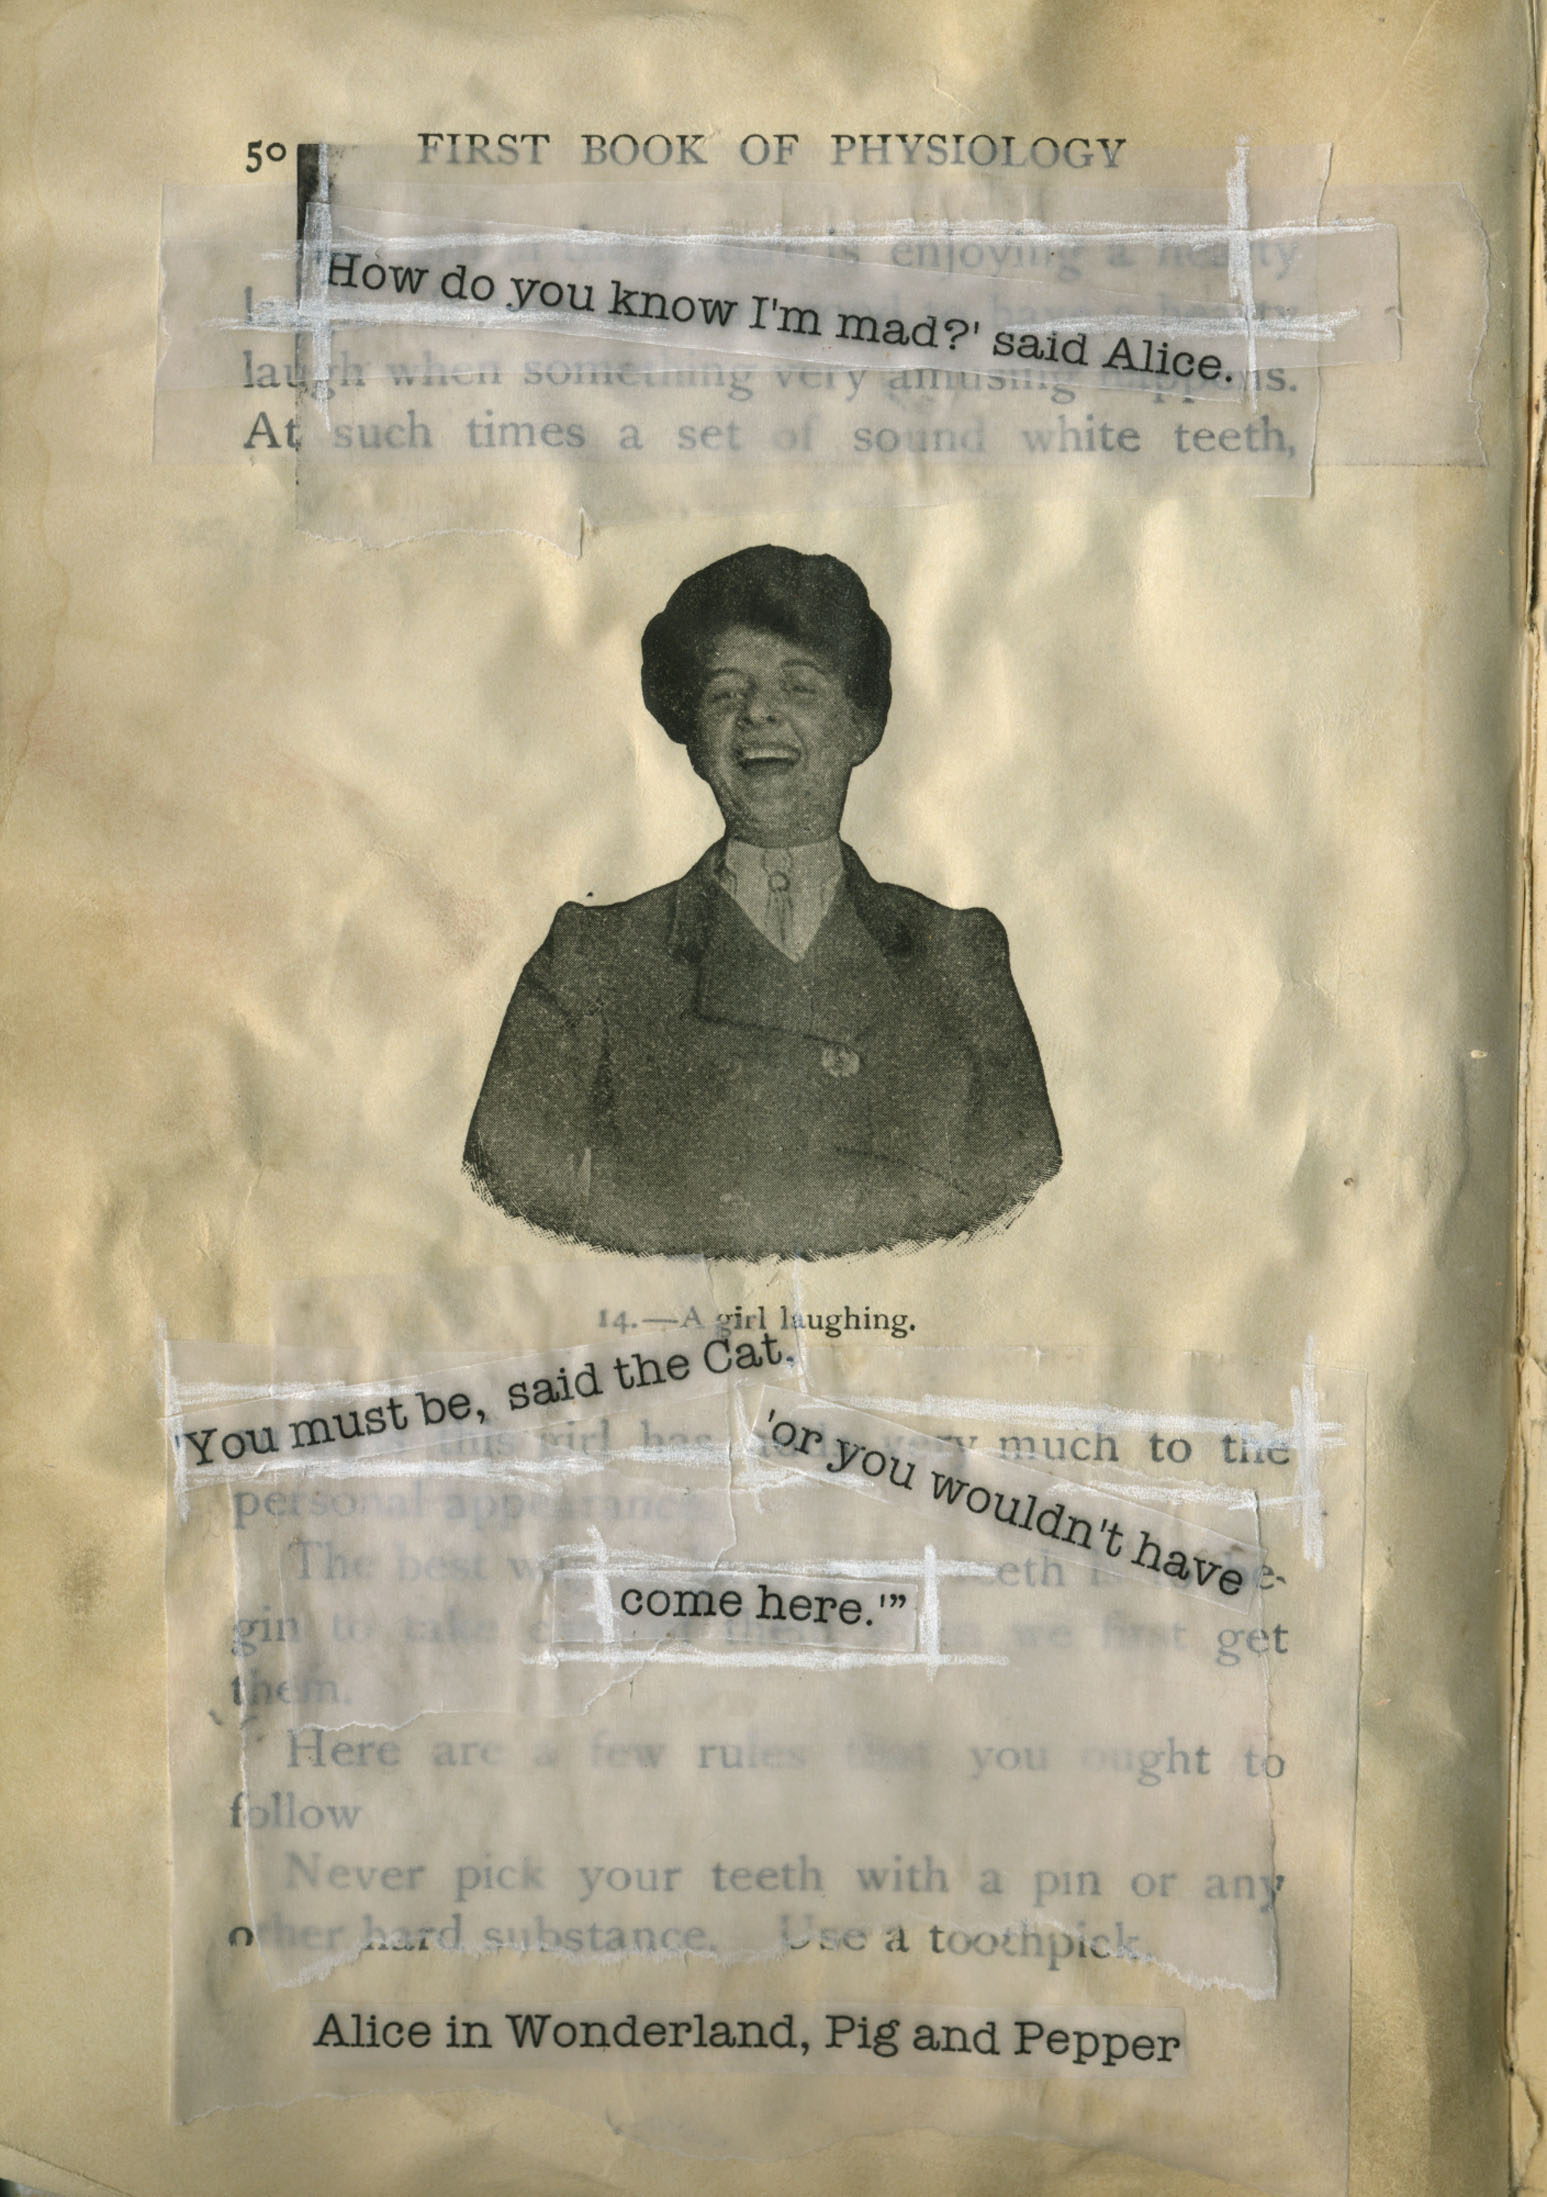 50 FIRST BOOK OF PHYSIOLOGY
is enjoying a hearty
How do you know I'm mad?' said Alice.
laugh when something very amusing happens.
At such times a set of sound white teeth,
14.—A girl laughing.
'You must be, said the Cat.
'or you wouldn't have
this girl has very much to the
personal appearance
come here.'”
The best teeth
gin to take we first get
them.
Here are a few rules that you ought to
follow
Never pick your teeth with a pin or any
other hard substance. Use a toothpick.
Alice in Wonderland, Pig and Pepper